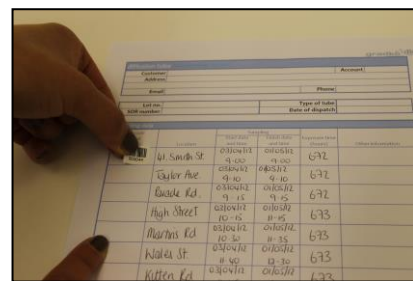 gradko
Diffusion tubes
Customer Account
Email Phone
Lot no. Type of tube
SOR number Date of dispatch
Location Start date and time Finish date and time Exposure time (hours) Other information
61. Smith St. 03/04/12 9-00 01/05/12 9-00 672
Taylor Ave. 03/04/12 9-10 01/05/12 9-10 672
Rd. 03/04/12 9-15 01/05/12 9-15 672
High Street 03/04/12 10-15 01/05/12 11-15 673
Martins Rd 03/04/12 10-30 01/05/12 11-35 673
Wales St. 03/04/12 11-40 01/05/12 12-30 673
Kitten Rd 03/04/12 01/05/12 673